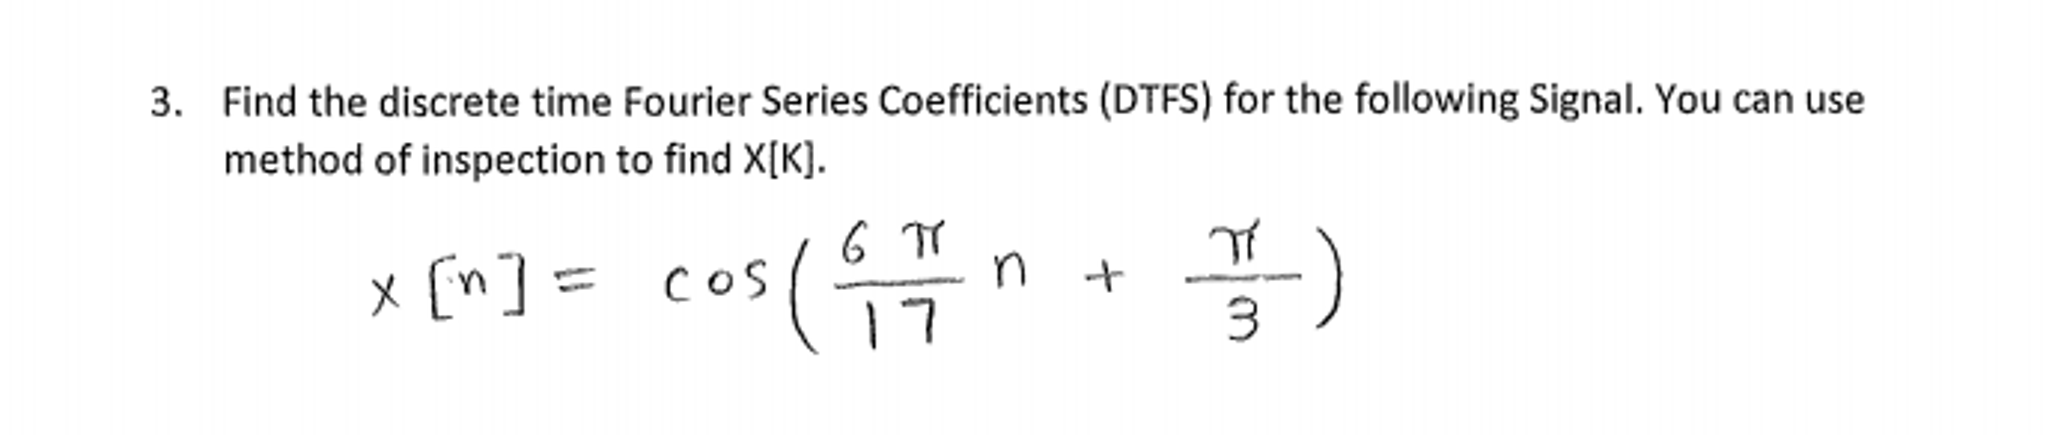 3. Find the discrete time Fourier Series Coefficients (DTFS) for the following Signal. You can use
method of inspection to find X[K].
x [n] = cos( 6π/17 n + π/3 )